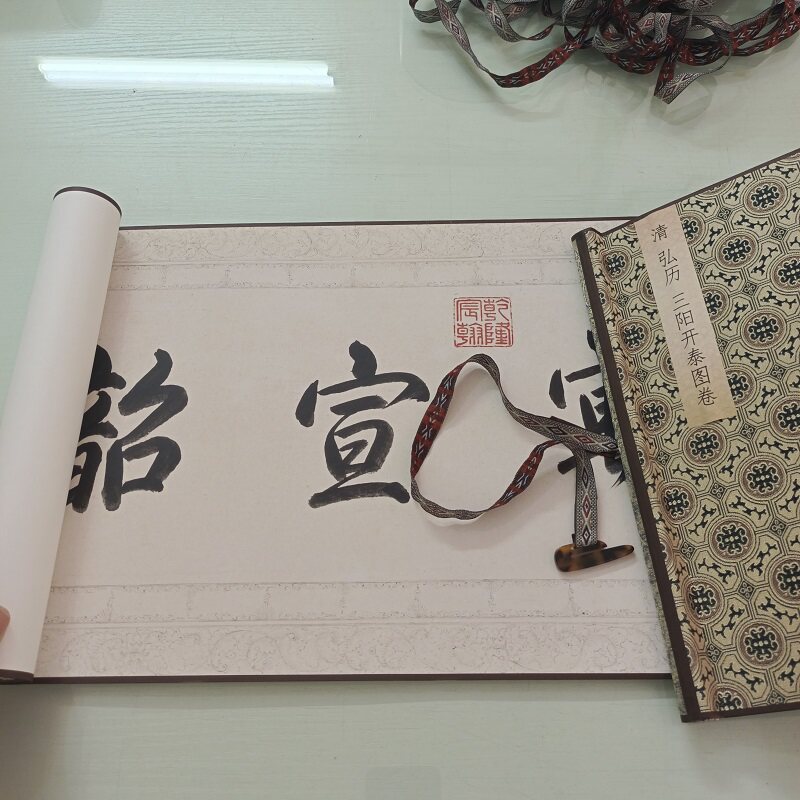 清 弘历 三阳开泰图卷
乾隆
宸翰
宣韶